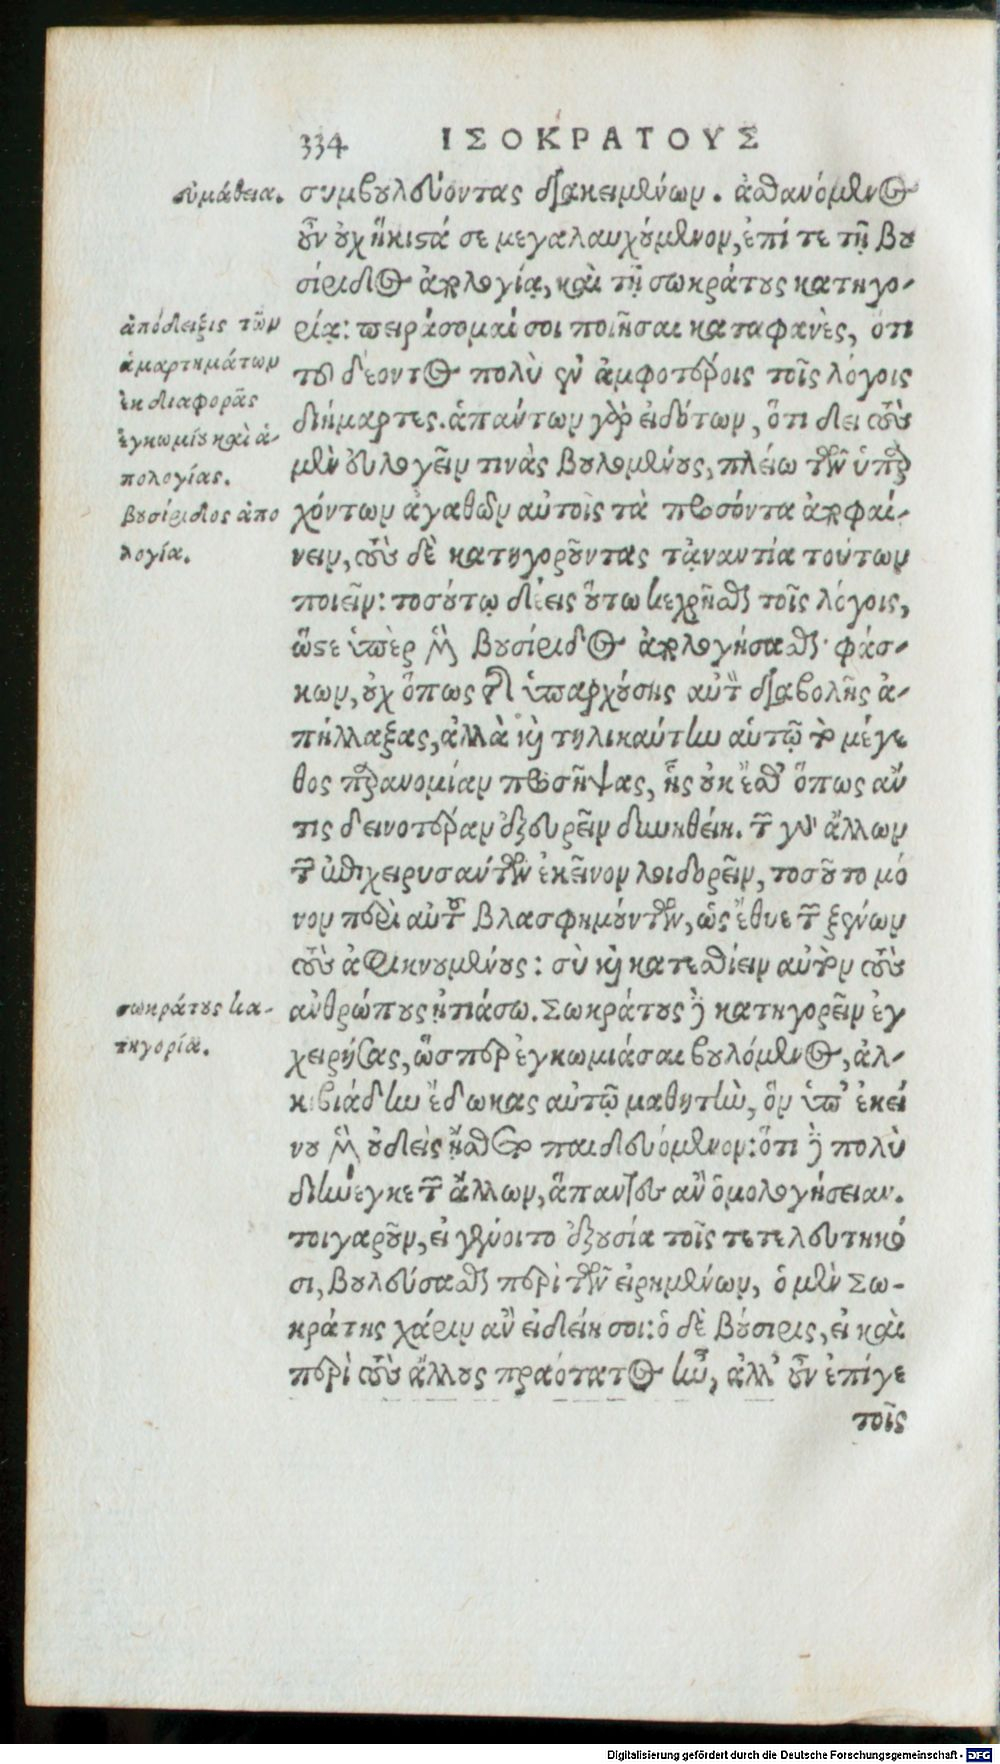 334 ΙΣΟΚΡΑΤΟΥΣ
εὐμάθεια.
συμβουλεύοντας διακειμένων. αἰσθανόμενος
οὖν οὐχ ἥκιστά σε μεγαλαυχούμενον, ἐπί τε τῇ βου
σίριδος ἀπολογίᾳ, καὶ τῇ σωκράτους κατηγο-
ρίᾳ: πειράσομαί σοι ποιῆσαι καταφανὲς, ὅτι
τοῦ δέοντος πολὺ ἐν ἀμφοτέροις τοῖς λόγοις
διήμαρτες. ἁπάντων γὰρ εἰδότων, ὅτι δεῖ τοὺς
μὲν εὐλογεῖν τινὰς βουλομένους, πλείω τῶν ὑπαρ
χόντων ἀγαθῶν αὐτοῖς τὰ προσόντα ἀποφαί-
νειν, τοὺς δὲ κατηγοροῦντας τἀναντία τούτων
ποιεῖν: τοσούτῳ δέεις οὕτω κεχρῆσθαι τοῖς λόγοις,
ὥστε ὑπὲρ μὲν βουσίριδος ἀπολογήσασθαι φάσ-
κων, οὐχ ὅπως τῆς ὑπαρχούσης αὐτῷ διαβολῆς ἀ-
πήλλαξας, ἀλλὰ καὶ τηλικαύτην αὐτῷ τὸ μέγε
θος παρανομίαν προσῆψας, ἧς οὐκ ἔσθ' ὅπως ἄν
τις δεινοτέραν ἐξευρεῖν δυνηθείη. τῶν γὰρ ἄλλων
τῶν ἐπιχειρησάντων ἐκεῖνον λοιδορεῖν, τοσοῦτο μό
νον περὶ αὐτοῦ βλασφημούντων, ὡς ἔθυε τῶν ξένων
τοὺς ἀφικνουμένους: σὺ καὶ κατεσθίειν αὐτὸν τοὺς
ἀνθρώπους ᾐτιάσω. Σωκράτους δὲ κατηγορεῖν ἐγ
χειρήσας, ὥσπερ ἐγκωμιάσαι βουλόμενος, ἀλ-
κιβιάδην ἔδωκας αὐτῷ μαθητὴν, ὃν ὑπ' ἐκεί
νου μὲν οὐδεὶς ᾔσθετο παιδευόμενον: ὅτι δὲ πολὺ
διήνεγκε τῶν ἄλλων, ἅπαντες ἂν ὁμολογήσειαν.
τοιγαροῦν, εἰ γένοιτο ἐξουσία τοῖς τετελευτηκό
σι, βουλεύσασθαι περὶ τῶν εἰρημένων, ὁ μὲν Σω-
κράτης χάριν ἂν εἰδείη σοι: ὁ δὲ βούσιρις, εἰ καὶ
περὶ τοὺς ἄλλους πραότατος ἦν, ἀλλ' οὖν ἐπίγε
τοῖς
ἀπόδειξις τῶν
ἁμαρτημάτων
ἐκ διαφορᾶς
ἐγκωμίου καὶ ἀ-
πολογίας.
βουσίριδος ἀπο
λογία.
σωκράτους κα-
τηγορία.
Digitalisierung gefördert durch die Deutsche Forschungsgemeinschaft - DFG